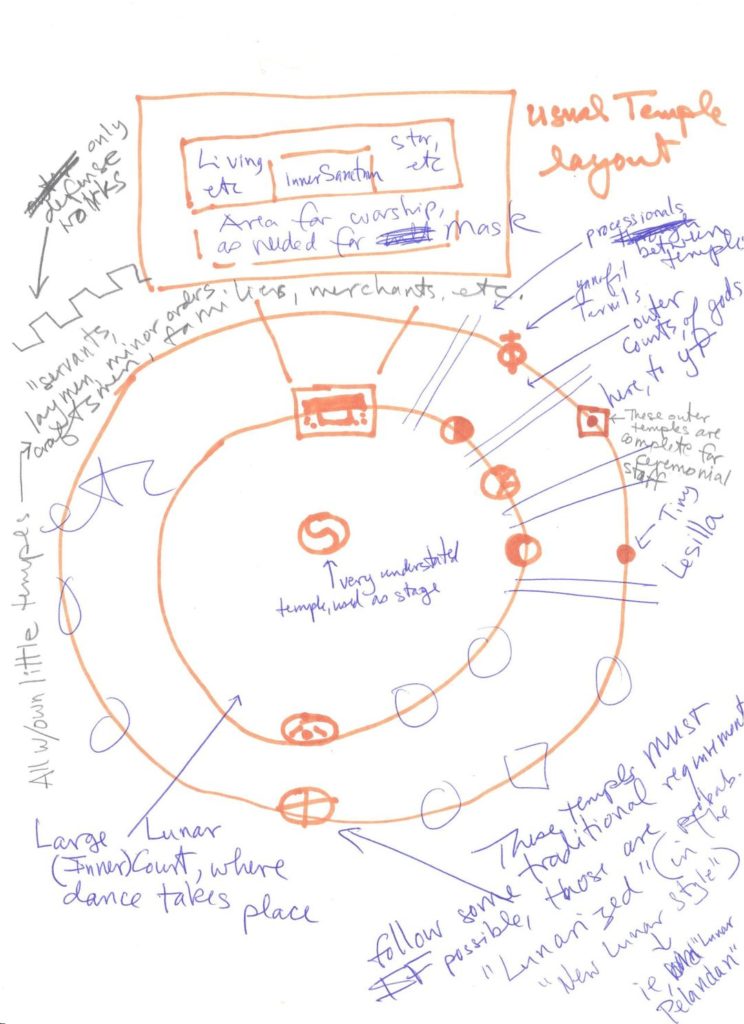 usual Temple
layout
only
defense
works
Living
etc
Inner Sanctum
Star,
etc
Area for worship,
as needed for mask
processionals
between
temple
outer
Courts of gods
here, to
These outer
temples are
complete for
ceremonial
staff
Tiny
Lesilla
"servants,
laymen, minor orders.
craftsmen, families, merchants, etc.
All w/own little temples
etc
very understated
temple, used as stage
Large Lunar
(Inner) Court, where
dance takes
place
These temples must
follow some traditional requirement
If possible, those are probab.
"Lunarized" (in the
"New Lunar Style")
ie, "Lunar
Pelandan"